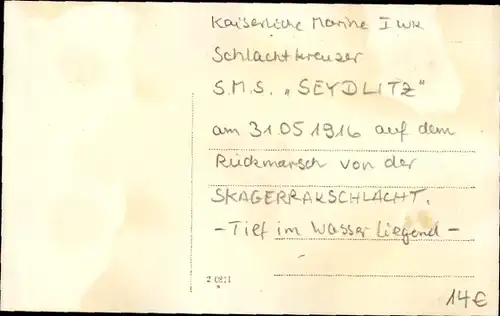 Kaiserliche Marine I WK
Schlachtkreuzer
S.M.S. „SEYDLITZ"
am 31.05.1916 auf dem
Rückmarsch von der
SKAGERRAKSCHLACHT.
-Tief im Wasser liegend-
14€